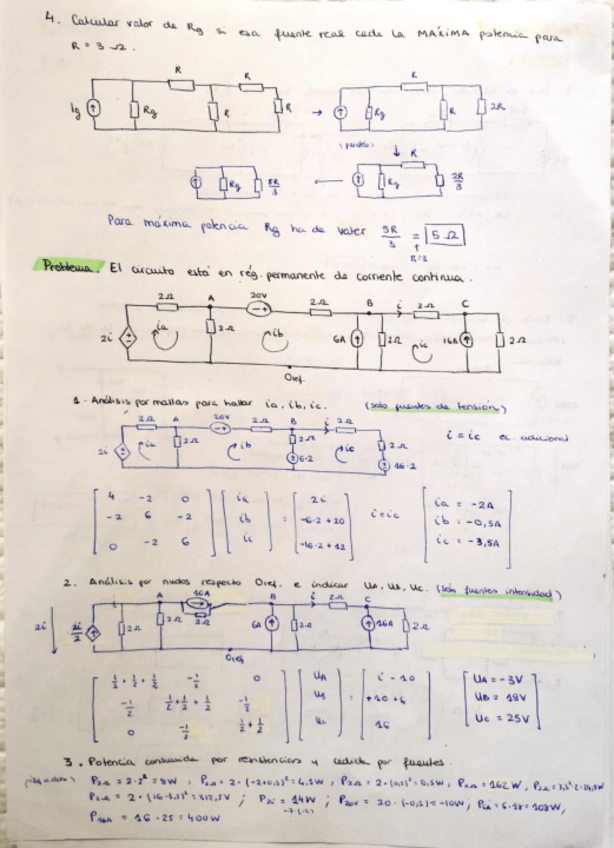 4. Calcular valor de Rg si esa fuente real cede la MÁXIMA potencia para
R = 3 Ω.
R R
Ig Rg R R → R Rg R 2R
(paralelo) ↓ R
Rg 5R/3 ← Rg 2R/3
Para máxima potencia Rg ha de valer 5R/3 = 5 Ω
↑
R=3
Problema. El circuito está en rég. permanente de corriente continua.
2Ω A 20V 2Ω B i 2Ω C
2i ia 2Ω ib 6A 2Ω ic 16A 2Ω
Oref.
1. Análisis por mallas para hallar ia, ib, ic. (solo fuentes de tensión)
2Ω A 20V 2Ω B i 2Ω
2i ia 2Ω ib 2Ω ic 2Ω i = ic ec. adicional
6·2 16·2
4 -2 0 ia 2i ia = -2A
-2 6 -2 ib = -6·2+20 i=ic ib = -0,5A
0 -2 6 ic -16·2+12 ic = -3,5A
2. Análisis por nudos respecto Oref. e indicar UA, UB, UC. (solo fuentes intensidad)
A 10A B i 2Ω C
2i 2i/2 2Ω 2Ω 2Ω 6A 2Ω 16A 2Ω
Oref
1/2+1/2+1/2 -1/2 0 UA i-10 UA = -3V
-1/2 1/2+1/2+1/2 -1/2 UB = +10+6 UB = 18V
0 -1/2 1/2+1/2 Uc 16 Uc = 25V
3. Potencia consumida por resistencias y cedida por fuentes.
P2Ω = 2·2² = 8W, P2Ω = 2·(-2+0,5)² = 4,5W, P2Ω = 2·(0,5)² = 0,5W, P2Ω = 162W, P2Ω = 3,5²·2 = 24,5W
P2Ω = 2·(16-3,5)² = 312,5V; P2i = 14W; P20V = 20·(-0,5) = -10W, P6A = 6·18 = 108W,
-7·(-2)
P16A = 16·25 = 400W